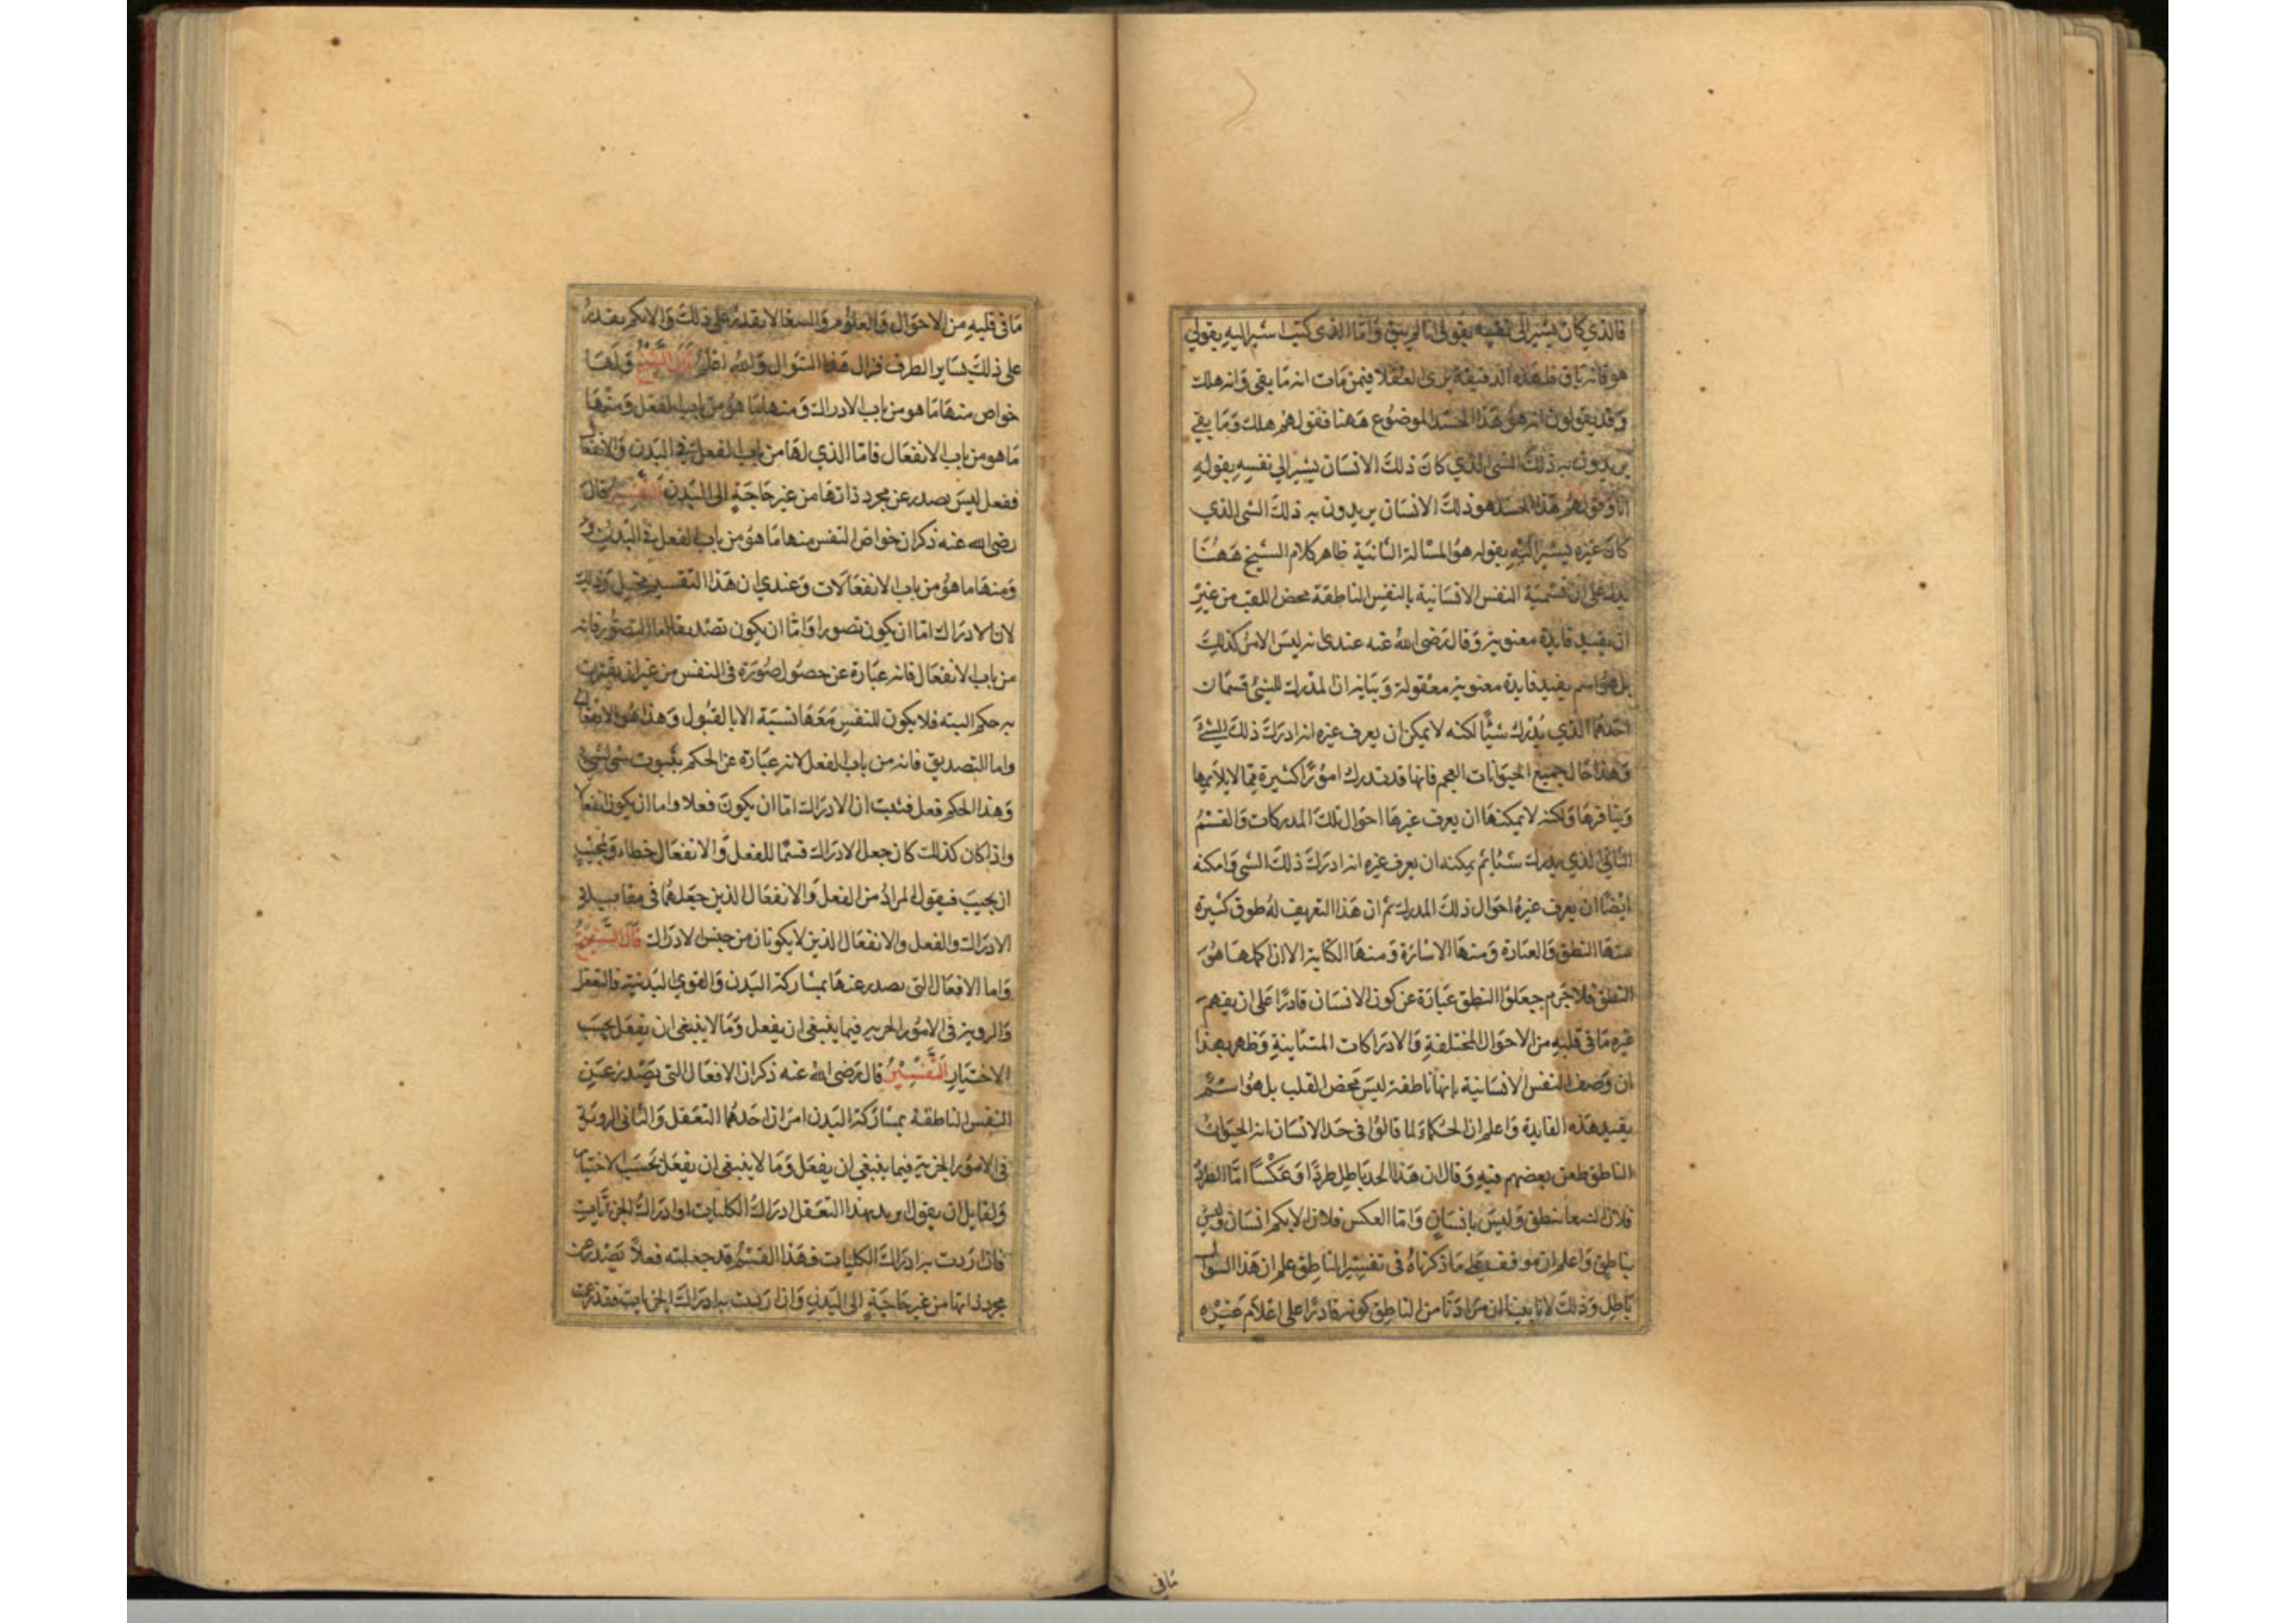 فالذي كان يشير الى نفسه بقوله انا لم يبق واما الذى كنت اشير اليه بقولي
هو فانه باق فلهذه الدقيقة يرى العقلا فيمن مات انه ما بقى وانه هلك
وقد يقولون انه هو هذا الجسد الموضوع ههنا فقولهم هلك وما بقي
يريدون به ذلك الشى الذي كان ذلك الانسان يشير الي نفسه بقوله
انا وقولهم هذا الجسد هو ذلك الانسان يريدون به ذلك الشى الذي
كان غيره يشير اليه بقوله هو المسالة الثانية ظاهر كلام الشيخ ههنا
يدل على ان تسمية النفس الانسانية بالنفس الناطقة محض اللقب من غير
ان يفيد فايدة معنوية وقال رضى الله عنه عندى انه ليس الامر كذلك
بل هو اسم يفيد فايدة معنوية معقولة وبيانه ان المدرك للشئ قسمان
احدهما الذي يدرك شيئا لكنه لا يمكن ان يعرف غيره انه ادرك ذلك الشئ
وهذا حال جميع الحيوانات العجم فانها قد تدرك امورا كثيرة مما لايلايمها
وينافرها ولكنه لا يمكنها ان يعرف غيرها احوال تلك المدركات والقسم
الثاني الذي يدرك شئا ثم يمكنه ان يعرف غيره انه ادرك ذلك الشى وامكنه
ايضا ان يعرف غيره احوال ذلك المدرك ثم ان هذا التعريف له طرق كثيرة
منها النطق والعبارة ومنها الاشارة ومنها الكتابة الا ان اكملها هو
النطق فلا جرم جعلوا النطق عبارة عن كون الانسان قادرا على ان يفهم
غيره ما فى قلبه من الاحوال المختلفة والادراكات المتباينة وظهر بهذا
ان وصف النفس الانسانية بانها ناطقة ليس محض القلب بل هو اسم
يفيد هذه الفايدة واعلم ان الحكماء لما قالوا فى حد الانسان انه الحيوان
الناطق طعن بعضهم فيه وقال ان هذا الحد باطل طردا وعكسا اما الطرد
فلان الببغا ينطق وليس بانسان واما العكس فلان الابكم انسان وليس
بناطق واعلم ان من وقف على ما ذكرناه فى تفسير الناطق علم ان هذا السوال
باطل وذلك لانا بينا ان مرادنا من الناطق كونه قادرا على اعلام غيره
مافى
ما فى قلبه من الاحوال والعلوم والببغا لا يقدر على ذلك والابكم يقدر
على ذلك بساير الطرق فزال هذا السوال والله اعلم قال الشيخ ولها
خواص منها ما هو من باب الادراك ومنها ما هو من باب الفعل ومنها
ما هو من باب الانفعال فاما الذي لها من باب الفعل فى البدن والانفعال
ففعل ليس يصدر عن مجرد ذاتها من غير حاجة الى البدن التفسير قال
رضى الله عنه ذكر ان خواص النفس منها ما هو من باب الفعل فى البدن
ومنها ما هو من باب الانفعالات وعندي ان هذا التقسيم مختل وذلك
لان الادراك اما ان يكون تصورا واما ان يكون تصديقا اما التصور فانه
من باب الانفعال فانه عبارة عن حصول صورة فى النفس من غير ان يقترن
به حكم البته فلا يكون للنفس معها نسبة الا بالقبول وهذا هو الانفعال
واما التصديق فانه من باب الفعل لانه عبارة عن الحكم بثبوت شى لشى
وهذا الحكم فعل فثبت ان الادراك اما ان يكون فعلا واما ان يكون انفعالا
واذا كان كذلك كان جعل الادراك قسما للفعل والانفعال خطاء ولمجيب
ان يجيب فيقول المراد من الفعل والانفعال الذين جعلهما فى مقابلة
الادراك والفعل والانفعال الذين لا يكونان من جنس الادراك قال الشيخ
واما الافعال التى تصدر عنها بمشاركة البدن والقوي البدنية فالتعقل
والروية فى الامور الجزيه فيما ينبغى ان يفعل وما لا ينبغى ان يفعل بحسب
الاختيار التفسير قال رضى الله عنه ذكر ان الافعال التى تصدر عن
النفس الناطقة بمشاركة البدن امران احدهما التعقل والثانى الروية
فى الامور الجزية فيما ينبغي ان يفعل وما لا ينبغى ان يفعل بحسب الاختيار
ولقايل ان يقول اتريد بهذا التعقل ادراك الكليات او ادراك الجزئيات
فان اردت به ادراك الكليات فهذا القسم قد جعلته فعلا تصدر عن
مجرد ذاتها من غير حاجة الى البدن وان اردت به ادراك الجزئيات فقد